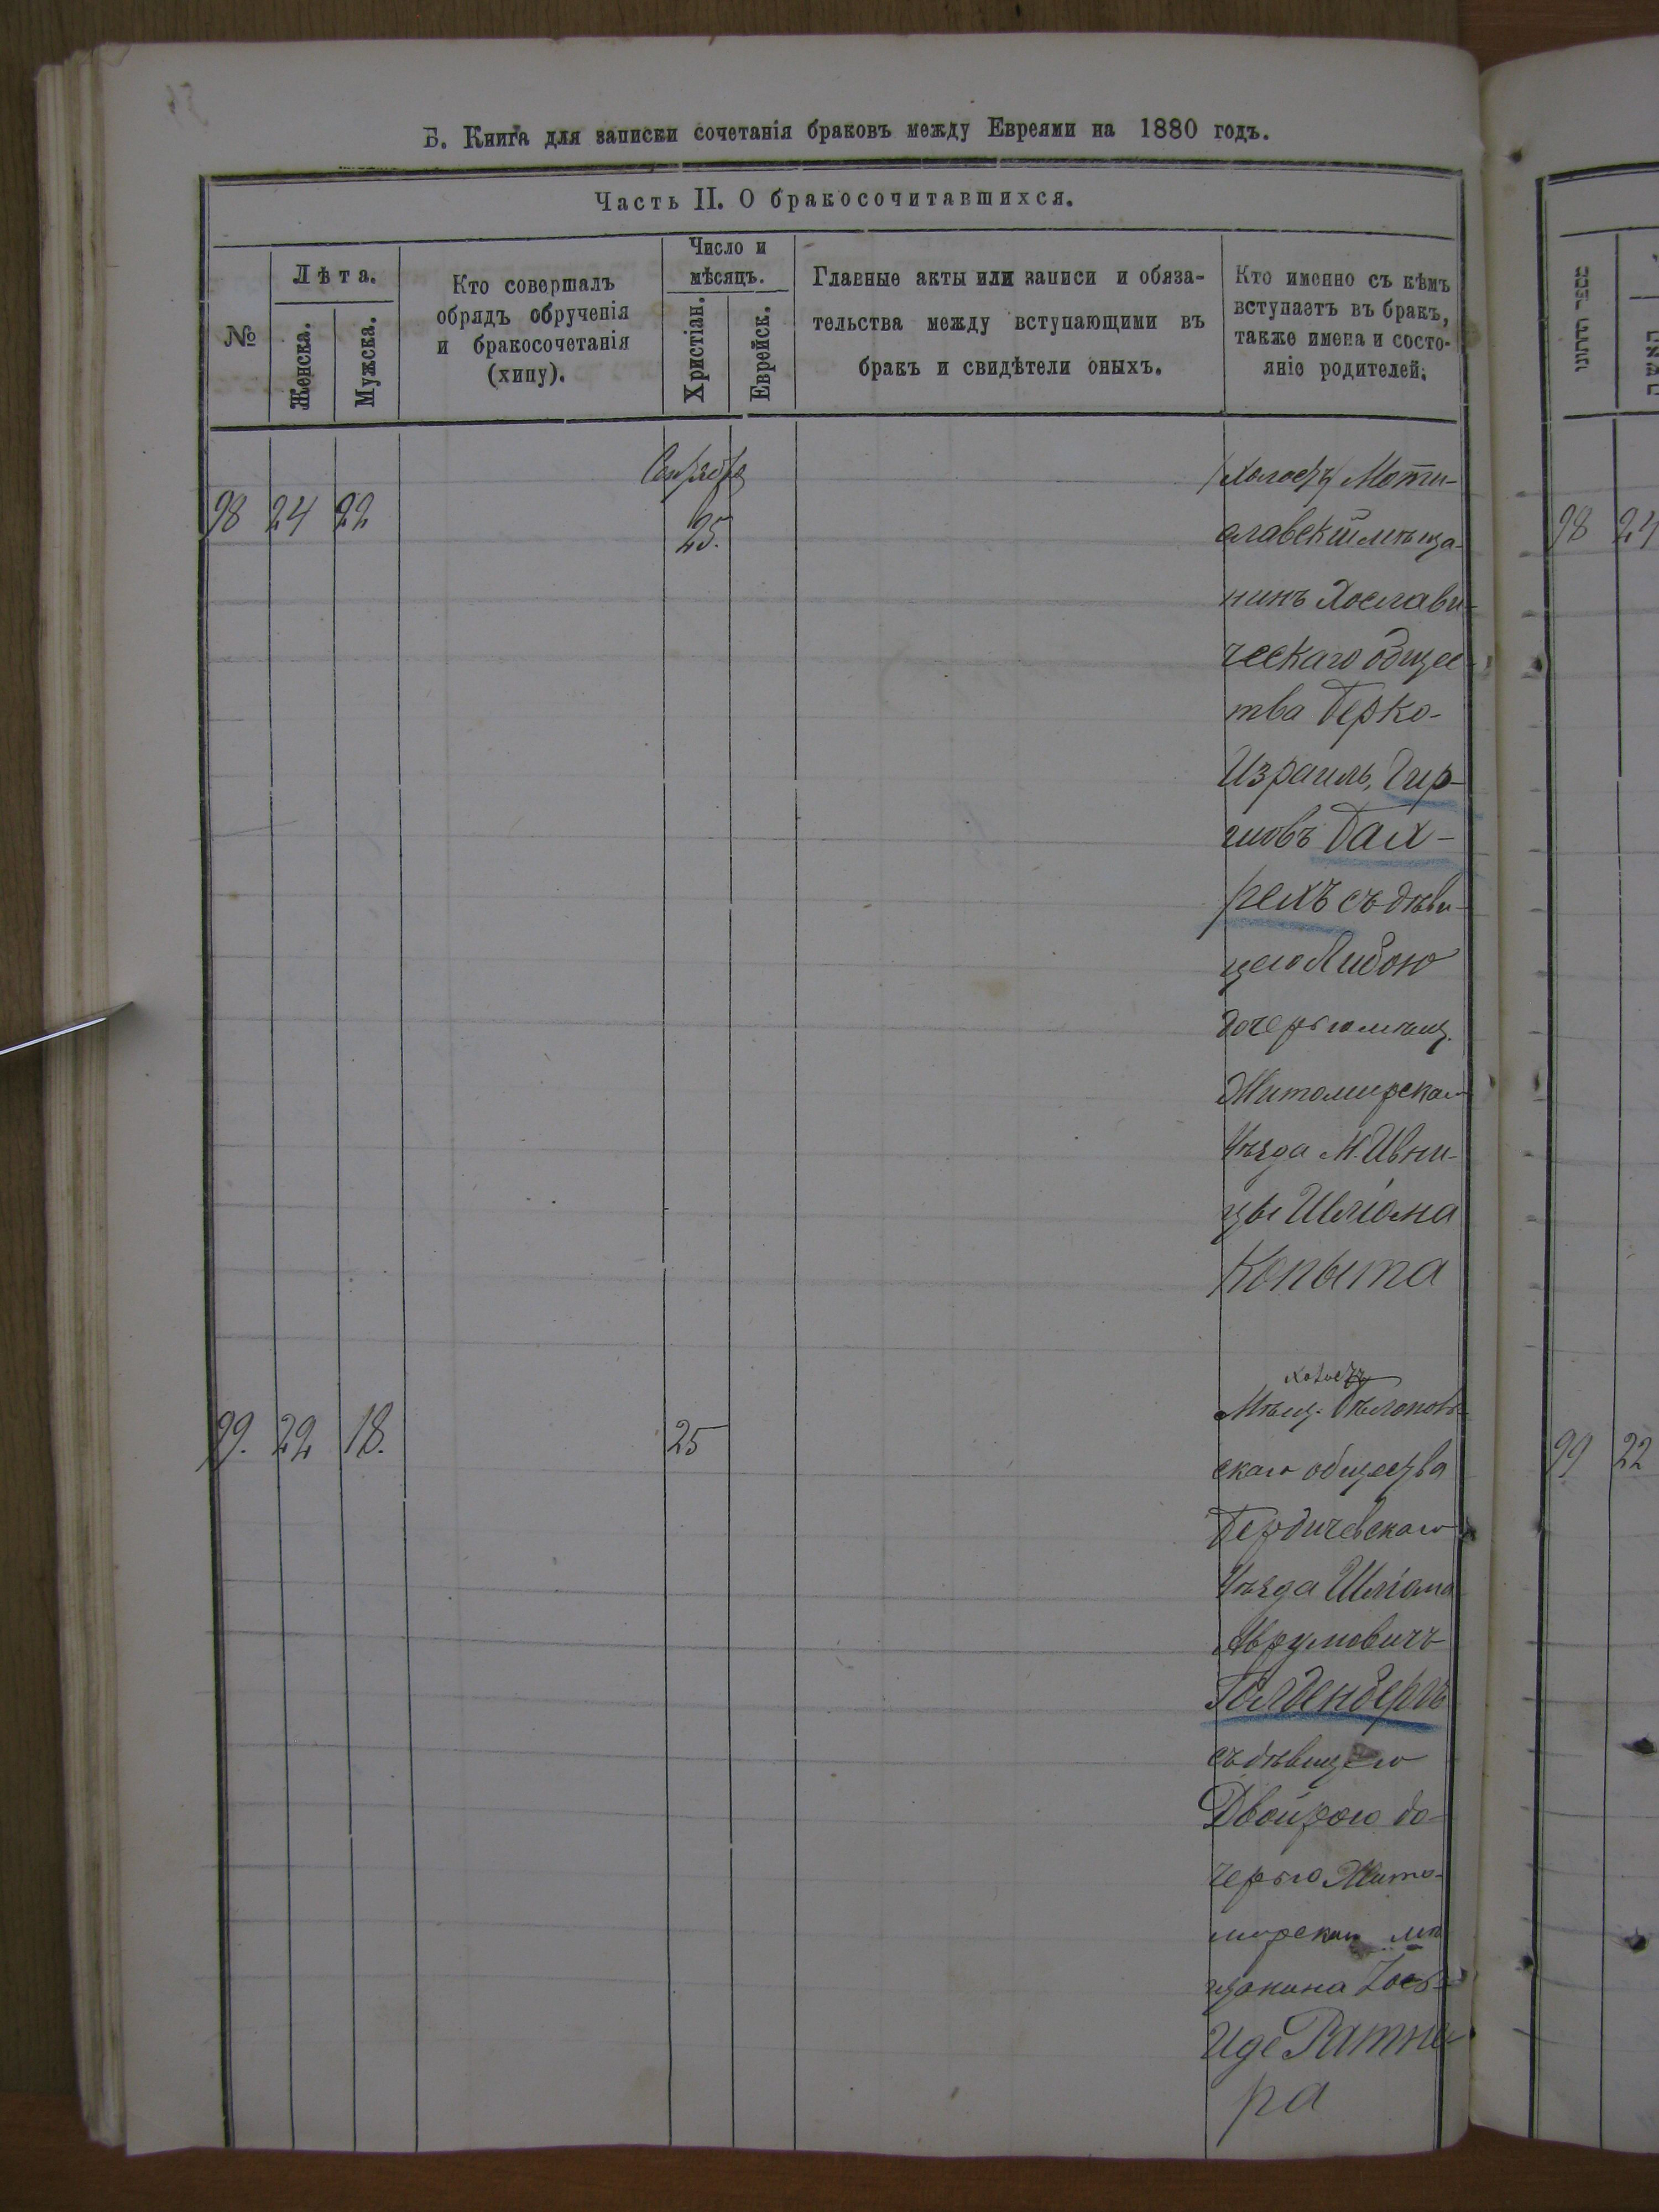 Б. Книга для записки сочетанія браковъ между Евреями на 1880 годъ.
Часть II. О бракосочитавшихся.
№
Лѣта.
Женска.
Мужска.
Кто совершалъ
обрядъ обрученія
и бракосочетанія
(хипу).
Число и
мѣсяцъ.
Христіан.
Еврейск.
Главные акты или записи и обяза-
тельства между вступающими въ
бракъ и свидѣтели оныхъ.
Кто именно съ кѣмъ
вступаетъ въ бракъ,
также имена и состо-
яніе родителей.
Сентября
98 24 22 25.
(холостъ) Мсти-
славскій мѣща-
нинъ Хослави-
ческаго общес-
тва Берко-
Израиль, Гир-
шовъ
съ дѣви-
цею Либою
дочерью мѣщ.
Житомирскаго
Уѣзда М. Ивни-
цы Шліома
Копыта
99. 22 18. 25
холостъ
Мѣщ. Бѣлополь-
скаго общества
Бердичевскаго
Уѣзда Шліома
Аврумовичъ
Голденбергъ
съ дѣвицею
Двойрою до-
черью Жито-
мирскаго мѣ
щанина Іось-
Иде Ратне-
ра
מספר החתונו
האשה
98 24
99 22